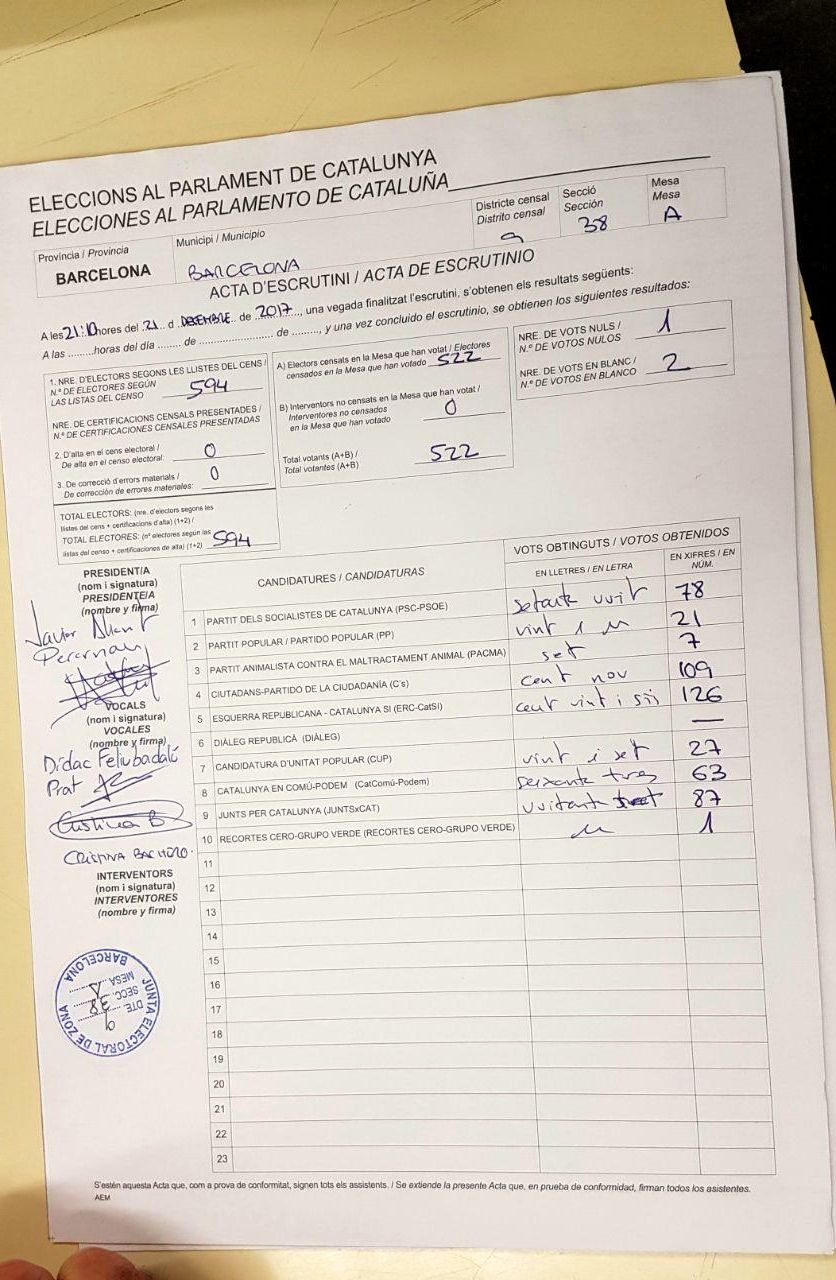 ELECCIONS AL PARLAMENT DE CATALUNYA
ELECCIONES AL PARLAMENTO DE CATALUÑA
Província / Provincia
BARCELONA
Municipi / Municipio
BARCELONA
Districte censal
Distrito censal
9
Secció
Sección
38
Mesa
Mesa
A
ACTA D'ESCRUTINI / ACTA DE ESCRUTINIO
A les 21:10 hores del 21 d DESEMBRE de 2017, una vegada finalitzat l'escrutini, s'obtenen els resultats següents:
A las ......... horas del día ....... de ........................ de ........., y una vez concluido el escrutinio, se obtienen los siguientes resultados:
1. NRE. D'ELECTORS SEGONS LES LLISTES DEL CENS /
N.º DE ELECTORES SEGÚN
LAS LISTAS DEL CENSO
594
NRE. DE CERTIFICACIONS CENSALS PRESENTADES /
N.º DE CERTIFICACIONES CENSALES PRESENTADAS
2. D'alta en el cens electoral /
De alta en el censo electoral:
0
3. De correcció d'errors materials /
De corrección de errores materiales:
0
TOTAL ELECTORS: (nre. d'electors segons les
llistes del cens + certificacions d'alta) (1+2) /
TOTAL ELECTORES: (nº electores según las
listas del censo + certificaciones de alta) (1+2)
594
A) Electors censats en la Mesa que han votat / Electores
censados en la Mesa que han votado
522
B) Interventors no censats en la Mesa que han votat /
Interventores no censados
en la Mesa que han votado
0
Total votants (A+B) /
Total votantes (A+B)
522
NRE. DE VOTS NULS /
N.º DE VOTOS NULOS
1
NRE. DE VOTS EN BLANC /
N.º DE VOTOS EN BLANCO
2
PRESIDENT/A
(nom i signatura)
PRESIDENTE/A
(nombre y firma)
Javier
VOCALS
(nom i signatura)
VOCALES
(nombre y firma)
Dídac Feliubadaló
Prat
Cristina B
CRISTINA
INTERVENTORS
(nom i signatura)
INTERVENTORES
(nombre y firma)
JUNTA ELECTORAL DE ZONA
BARCELONA
DTE. 9
SECC. 38
MESA A
CANDIDATURES / CANDIDATURAS
VOTS OBTINGUTS / VOTOS OBTENIDOS
EN LLETRES / EN LETRA
EN XIFRES / EN NÚM.
1 PARTIT DELS SOCIALISTES DE CATALUNYA (PSC-PSOE) setanta vuit 78
2 PARTIT POPULAR / PARTIDO POPULAR (PP) vint i u 21
3 PARTIT ANIMALISTA CONTRA EL MALTRACTAMENT ANIMAL (PACMA) set 7
4 CIUTADANS-PARTIDO DE LA CIUDADANÍA (C's) cent nou 109
5 ESQUERRA REPUBLICANA - CATALUNYA SI (ERC-CatSI) cent vint i sis 126
6 DIÀLEG REPUBLICÀ (DIÀLEG) —
7 CANDIDATURA D'UNITAT POPULAR (CUP) vint i set 27
8 CATALUNYA EN COMÚ-PODEM (CatComú-Podem) seixanta tres 63
9 JUNTS PER CATALUNYA (JUNTSxCAT) vuitanta set 87
10 RECORTES CERO-GRUPO VERDE (RECORTES CERO-GRUPO VERDE) u 1
11
12
13
14
15
16
17
18
19
20
21
22
23
S'estén aquesta Acta que, com a prova de conformitat, signen tots els assistents. / Se extiende la presente Acta que, en prueba de conformidad, firman todos los asistentes.
AEM